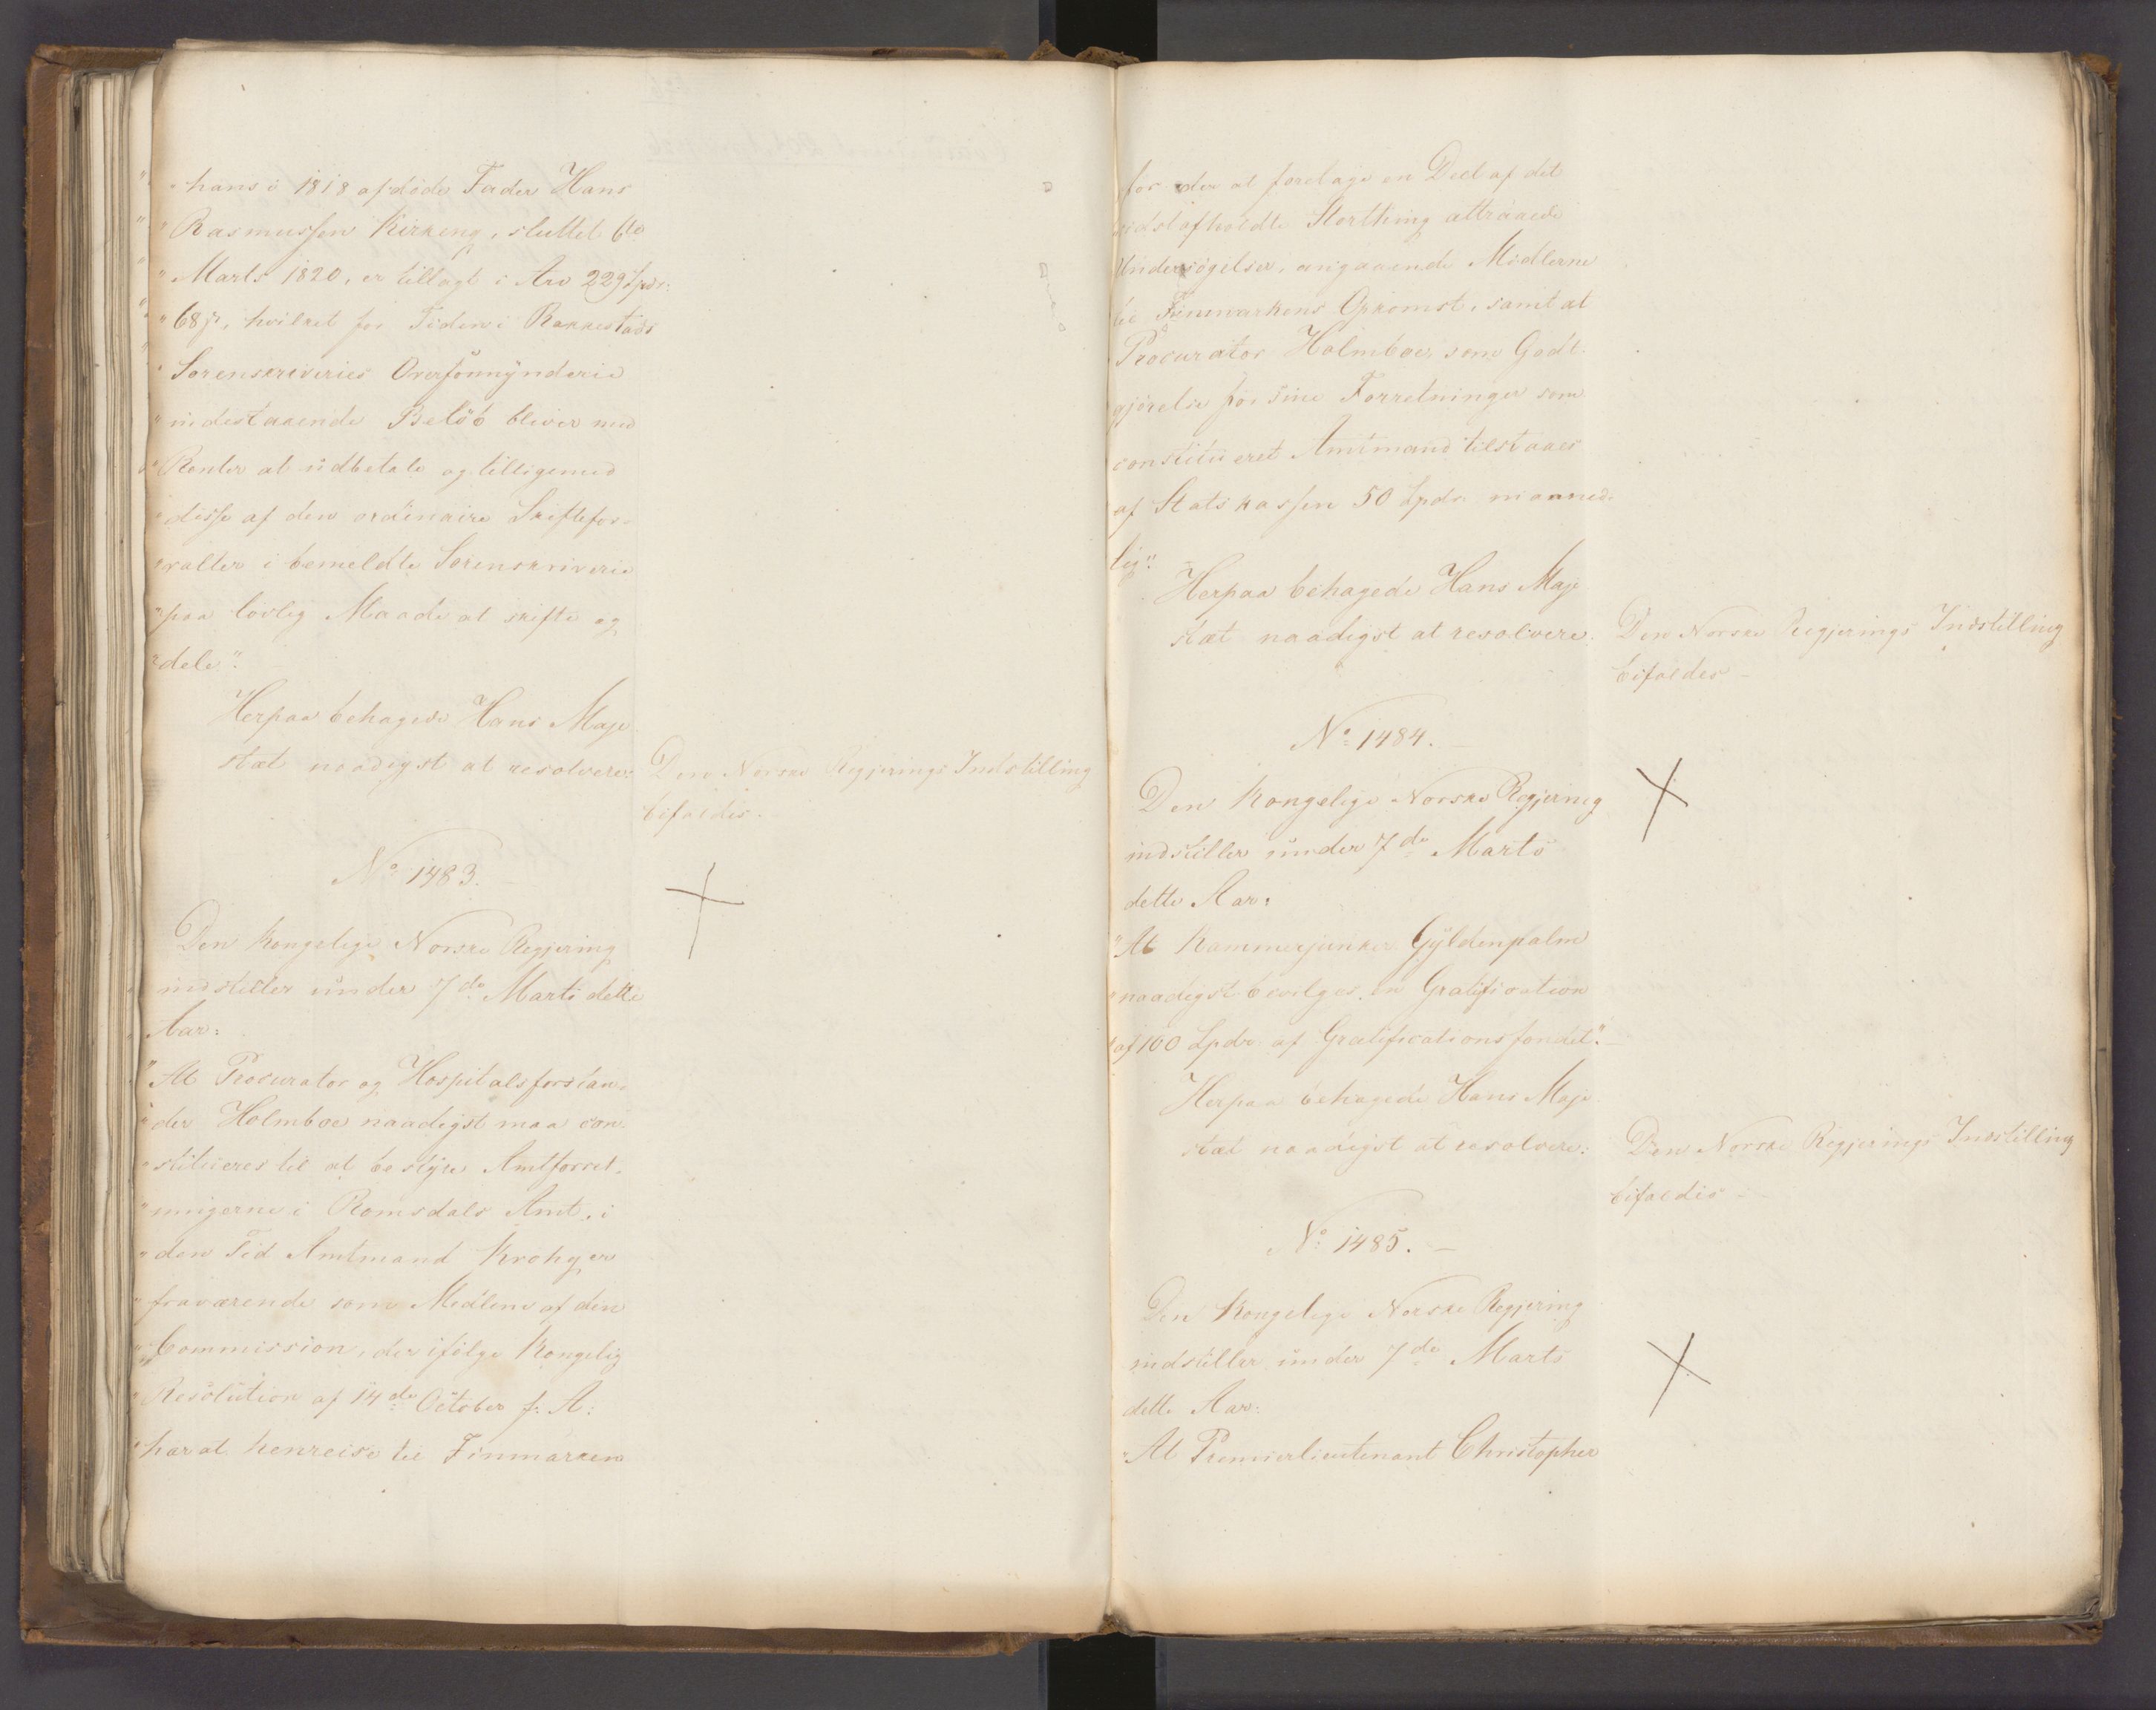 "hans i 1818 afdøde Fader Hans
"Rasmussen Kirkeng, sluttet 6te
"Marts 1820, er tillagt i Arv 229 Spdr:
"68 ß, hvilket for Tiden i Rakkestads
"Sorenskriveries Overformynderie
"indestaaende Beløb bliver med
"Renter at udbetale og tilligemed
"disse af den ordinaire Skiftefor-
"valter i bemeldte Sorenskriverie
"paa lovlig Maade at skifte og
"dele".
Herpaa behagede Hans Maje
stæt naadigst at resolvere:
Den Norske Regjerings Indstilling
bifaldes.
No 1483.
Den Kongelige Norske Regjering
indstiller under 7de Marts dette
Aar:
"At Procurator og Hospitalsforstan-
"der Holmboe naadigst maa con-
"stitueres til at bestyre Amtforret-
"ningerne i Romsdals Amt, i
"den Tid Amtmand Krohg er
"fraværende som Medlem af den
"Commission, der ifølge Kongelig
"Resolution af 14de October f: A:
"har at henreise til Finmarken
for der at foretage en Deel af det
sidst afholdte Storthing attraaede
Undersøgelser, angaaende Midlerne
til Finmarkens Opkomst, samt at
Procurator Holmboe, som Godt-
gjørelse for sine Forretninger som
constitueret Amtmand tilstaaes
af Statskassen 50 Spdr maaned-
lig".
Herpaa behagede Hans Maje
stæt naadigst at resolvere.
Den Norske Regjerings Indstilling
bifaldes –
No 1484.
Den Kongelige Norske Regjering
indstiller under 7de Marts
dette Aar:
"At Kammerjunker Gyldenpalm
"naadigst bevilges en Gratification
"af 100 Spdr af Gratificationsfondet".
Herpaa behagede Hans Maje
stæt naadigst at resolvere:
Den Norske Regjerings Indstilling
bifaldes –
No 1485. –
Den Kongelige Norske Regjering
indstiller under 7de Marts
dette Aar:
"At Premierlieutenant Christopher